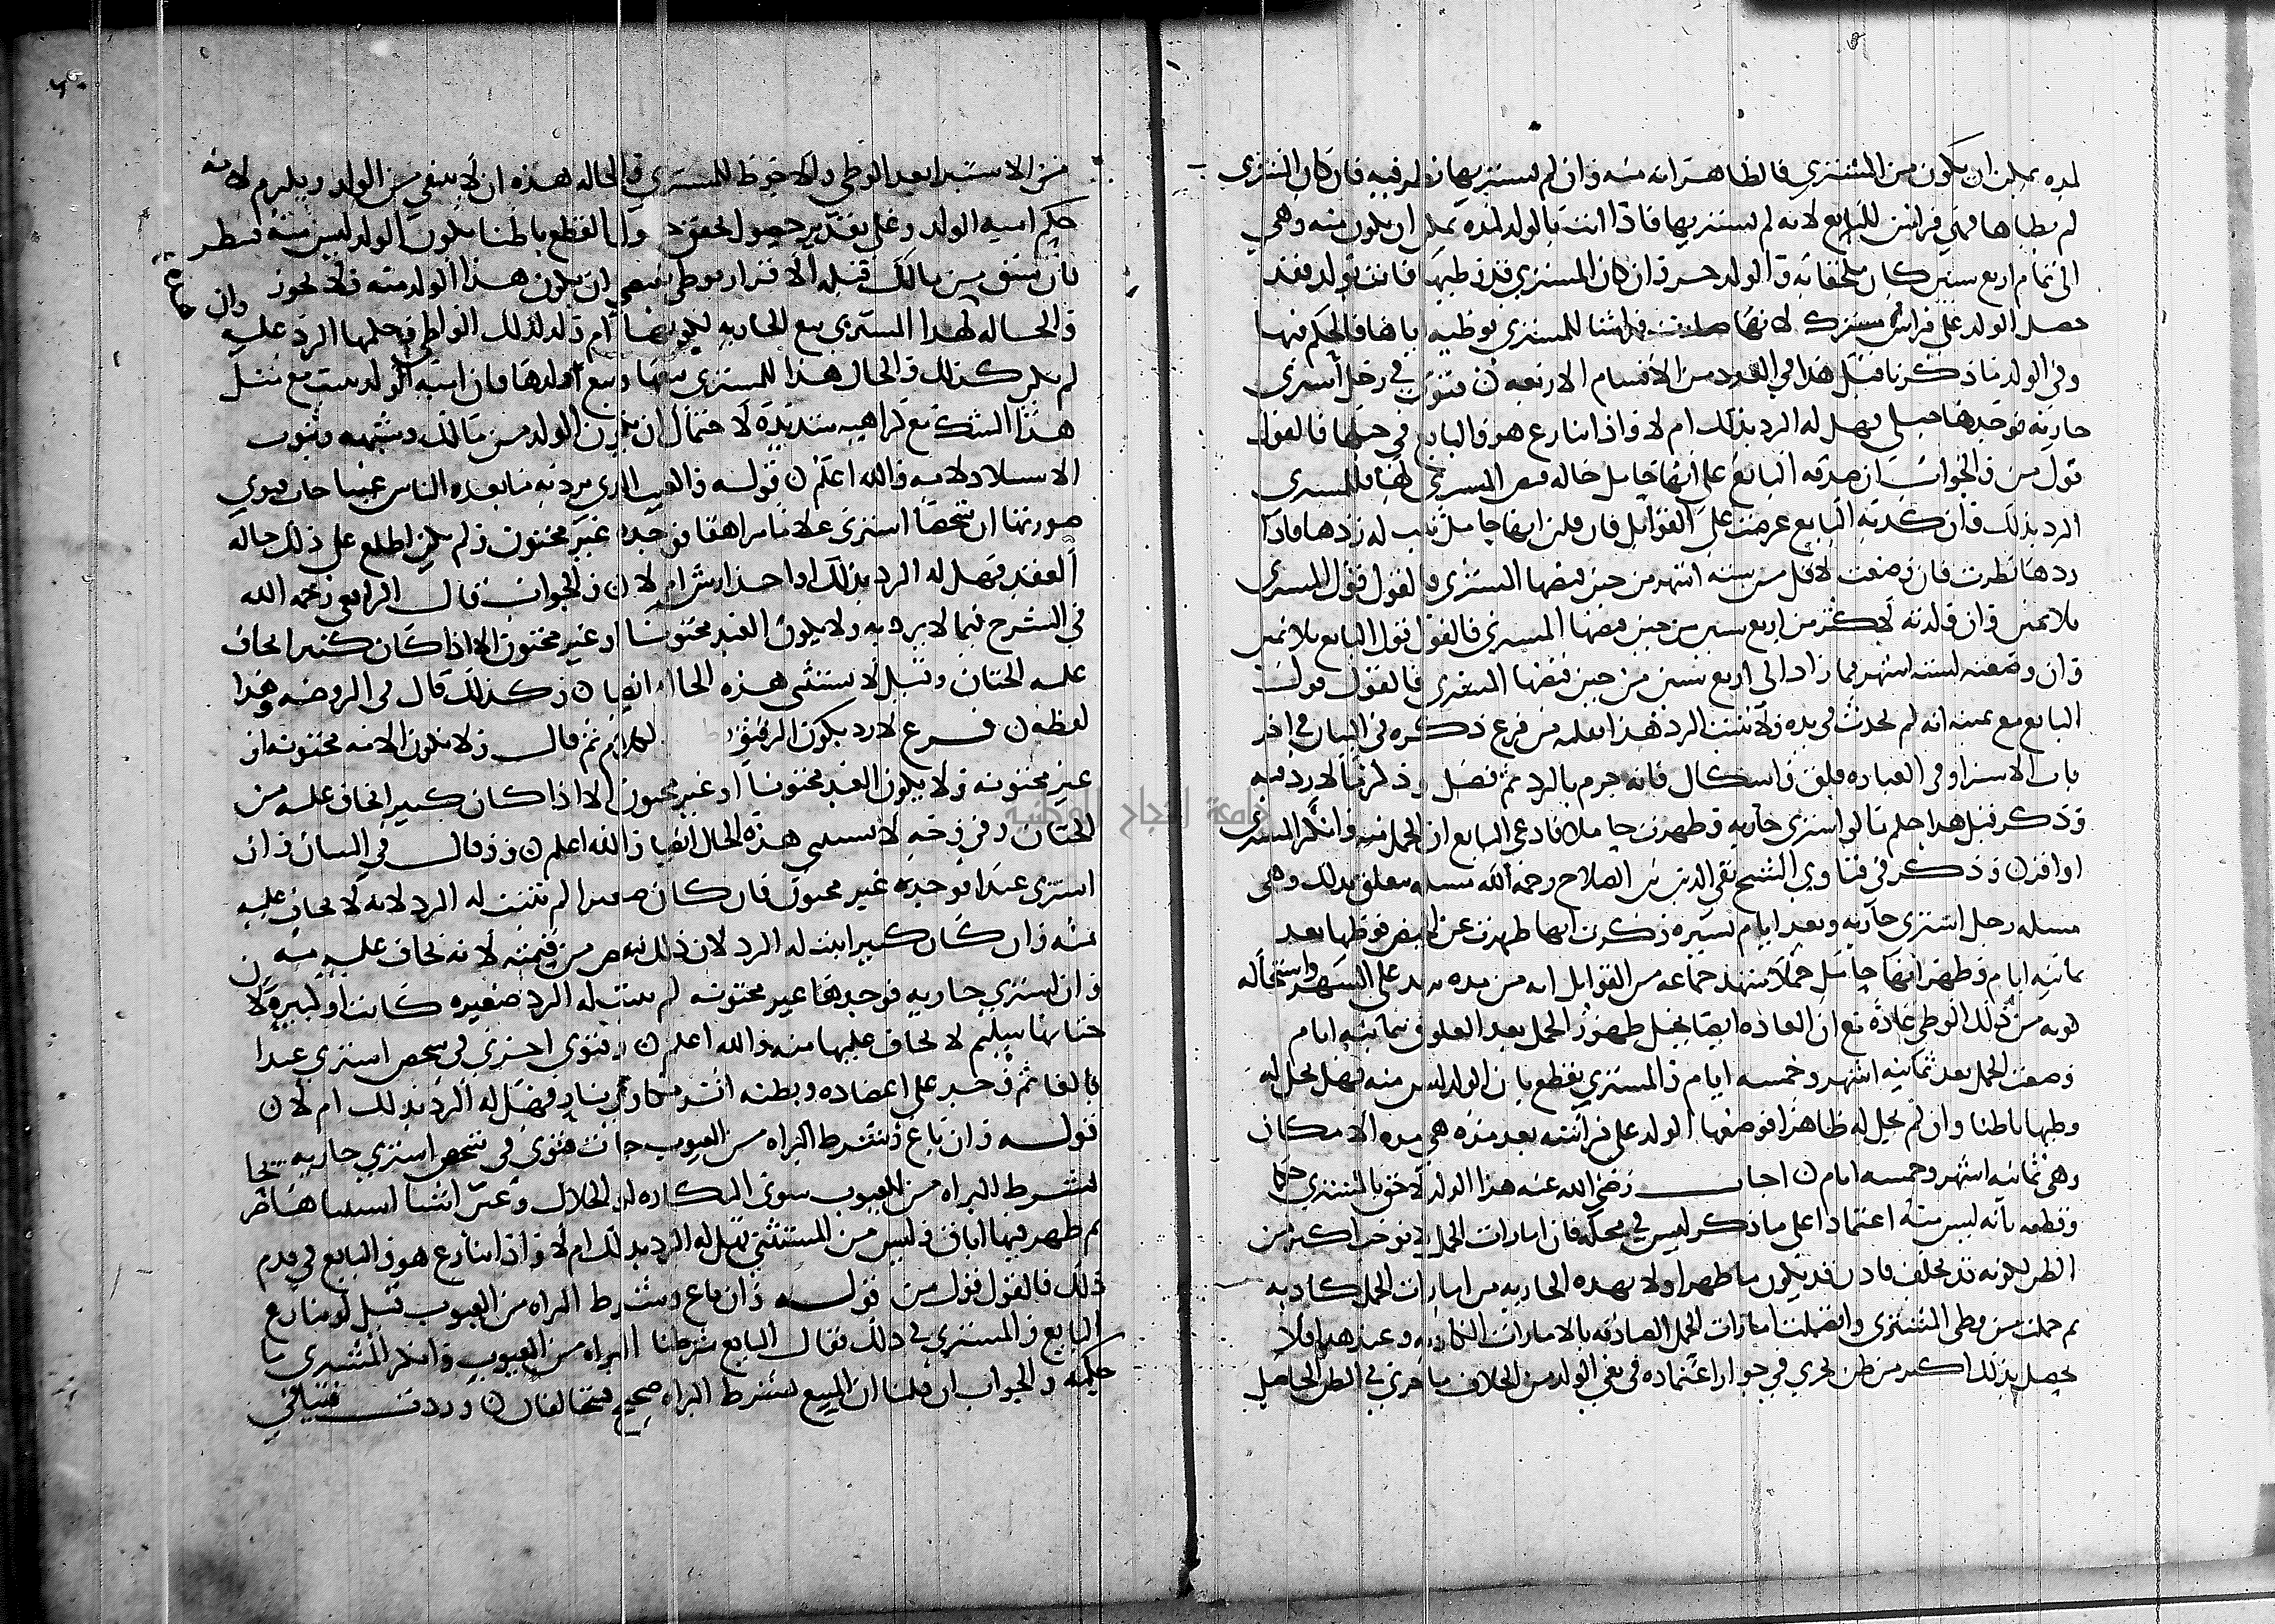 لمده يمكن ان يكون من المشتري فالظاهر انه منه وان لم يستبريها نظر فيه فان كان المشتري
لم يطاها فهي فراش للبايع لانه لم يستبريها فاذا اتت بالولد لمده يمكن ان يكون منه وهي
الى تمام اربع سنين كان ملحقا به والولد حر وان كان المشتري قد وطيها فاتت بولد فقد
حصل الولد على فراش مشترك لانها صارت فراشا للمشتري بوطيه اياها فالحكم فيها
وفي الولد ما ذكرنا قبل هذا في القدر من الاقسام الاربعه ن فتوى في رجل اشترى
جاريه فوجدها حبلى فهل له الرد بذلك ام لا واذا تنازع هو والبايع في حبلها فالقول
قول من والجواب ان صدقه البايع على انها حامل حاله قبض المشتري لها فللمشتري
الرد بذلك وان كذبه البايع عرضت على القوابل فان قلن انها حامل ثبت له ردها فاذا
ردها نظرت فان وضعت لاقل من سته اشهر من حين قبضها المشتري فالقول قول المشتري
بلا يمين وان ولدته لاكثر من اربع سنين من حين قبضها المشتري فالقول قول البايع بلا يمين
وان وضعته لسته اشهر فما زاد الى اربع سنين من حين قبضها المشتري فالقول قول
البايع مع يمينه انه لم يحدث في يده ولا يثبت الرد هذا نقلته من فرع ذكره في البيان في اخر
باب الاستبرا وفي العباره قلق واشكال فانه جزم بالرد ثم فصل وذكر ما لا رد فيه
وذكر قبل هذا حكم ما لو اشترى جاريه وظهرت حاملا فادعى البايع ان الحمل منه وانكر المشتري
او اقر ن وذكر في فتاوي الشيخ تقي الدين بن الصلاح رحمه الله مسله تتعلق بذلك وهي
مسله رجل اشترى جاريه وبعد ايام يسيره ذكرت انها طهرت عن الحيض فوطيها بعد
ثمانيه ايام فظهر انها حامل حملا شهد جماعه من القوابل انه من مده تزيد على الشهر واستحاله
كونه من ذلك الوطي عادة مع ان العاده ايضا تحيل ظهور الحمل بعد العلوق بثمانيه ايام
وضعت الحمل بعد ثمانيه اشهر وخمسه ايام والمشتري يقطع بان الولد ليس منه فهل يحل له
وطيها باطنا وان لم يحل له ظاهرا فوضعها الولد على فراشه بعد مده هي مده الامكان
وهي ثمانيه اشهر وخمسه ايام ن اجاب رضي الله عنه هذا الولد لاحق بالمشتري حكما
وقطعه بانه ليس منه اعتمادا على ما ذكر ليس في محله فان امارات الحمل لا توجب اكثر من
الظن لكونه قد تخلف فاذن قد يكون ما ظهر اولا بهذه الجاريه من امارات الحمل كاذبه
ثم حملت من وطي المشتري واتصلت امارات الحمل الصادقه بالامارات الكاذبه وعند هذا فلا
يحصل بذلك اكثر من ظن يجري في جواز اعتماده في نفي الولد من الخلاف ما جرى في الظن الحاصل
من الاستبرا بعد الوطي والاحوط للمشتري والحاله هذه ان لا ينتفي من الولد ويلزم لانه
حكم امية الولد وعلى تقدير حصول والقطع باطنا بكون الولد ليس منه ينظر
فان سبق من مالك قبله الاقرار بوطي يقتضي ان يكون هذا الولد منه فلا يجوز وان
والحاله لهذا المشتري بيع الجاريه لكونها ام ولد لذلك الواطي وحكمها الرد عليه
لم يكن كذلك والحال هذا للمشتري بيعها وبيع ولدها فان امية الولد تثبت مع مثل
هذا الشك مع كراهيه شديدة لاحتمال ان يكون الولد من مالك وشبهه وثبوت
الاستيلاد لامه والله اعلم ن قوله والعيب الذي يرد به ما يعده الناس عيبا جات فتوى
صورتها ان شخصا اشترى غلاما مراهقا فوجده غير مختون ولم يكن اطلع على ذلك حاله
العقد فهل له الرد بذلك او اخذ ارش ام لا ن والجواب قال الرافعي رحمه الله
في الشرح فيما لا يرد به ولا بكون العبد مختونا او غير مختون الا اذا كان كبيرا يخاف
عليه الختان وقيل لا يستثنى هذه الحاله ايضا ن وكذلك قال في الروضه وهذا
لفظه ن فرع لا رد بكون الرقيق ثم قال ولا بكون الامه مختونه او
غير مختونه ولا بكون العبد مختونا او غير مختون الا اذا كان كبيرا يخاف عليه من
الختان وفي وجه لا تستثنى هذه الحال ايضا والله اعلم ن وقال في البيان وان
اشترى عبدا فوجده غير مختون فان كان صغيرا لم يثبت له الرد لانه لا يخاف عليه
منه وان كان كبيرا يثبت له الرد لان ذلك ينقص من قيمته لانه يخاف عليه منه ن
وان اشترى جاريه فوجدها غير مختونه لم يثبت له الرد صغيره كانت او كبيره لان
ختانها سليم لا يخاف عليها منه والله اعلم ن وفتوى اخرى في شخص اشترى عبدا
بالغا ثم وجد على اعضاده وبطنه اثر نار فهل له الرد بذلك ام لا ن
قوله وان باع وشرط البراه من العيوب جات فتوى في شخص اشترى جاريه
بشرط البراه من العيوب سوى الحلال وعين اشيا استثناها
ثم ظهر فيها اباق وليس من المستثنى فهل له الرد بذلك ام لا واذا تنازع هو والبايع في قدم
ذلك فالقول قول من قوله وان باع وشرط البراه من العيوب قيل لو تنازع
البايع والمشتري في ذلك فقال البايع شرطنا البراه من العيوب وانكر المشتري ما
حكمه والجواب ان قلنا ان البيع بشرط البراه صحيح فيتحالفان ن وردت فتيا في